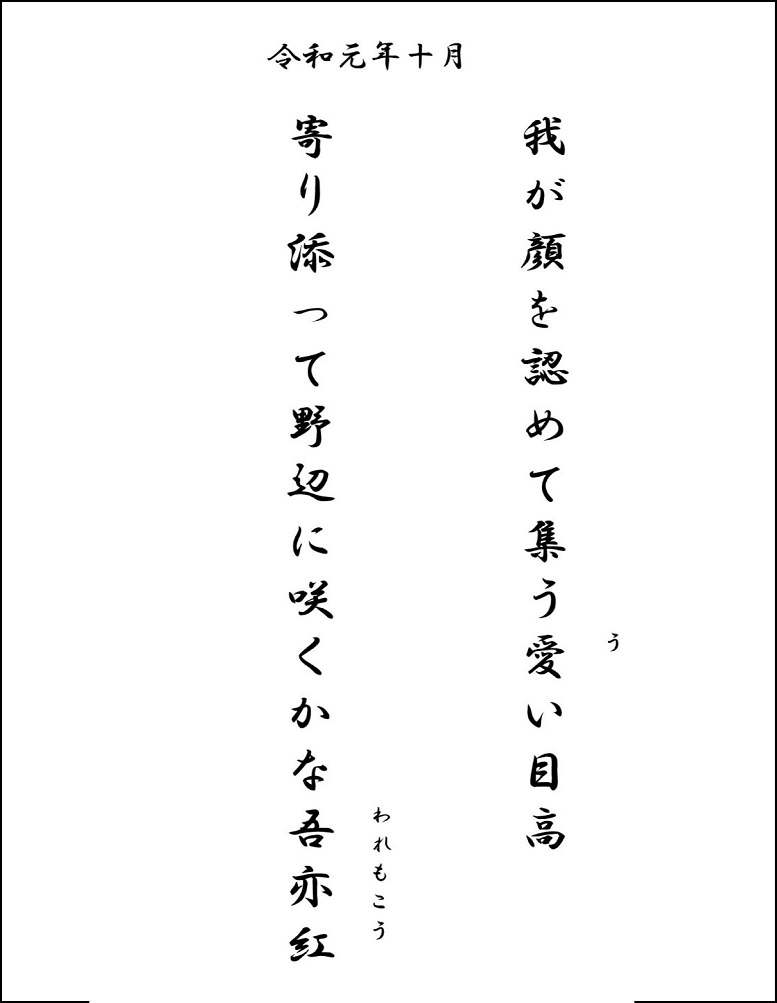 令和元年十月
我が顔を認めて集う愛い目高
う
寄り添って野辺に咲くかな吾亦紅
われもこう